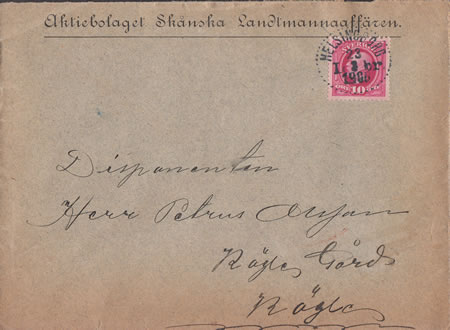 Aktiebolaget Skånska Landtmannaaffären.
HELSINGBORG
1 br
SVERIGE
10
Disponenten
Herr Petrus Olsson
Rögle Gård
Rögle